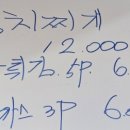 치찌개
12.000
튀김.5P. 6
까스 3P 6.